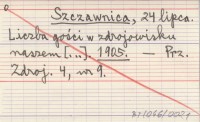 Szczawnica, 24 lipca.
Liczba gości w zdrojowisku
naszem [...] 1905. — Prz.
Zdroj. 4, nr 9.